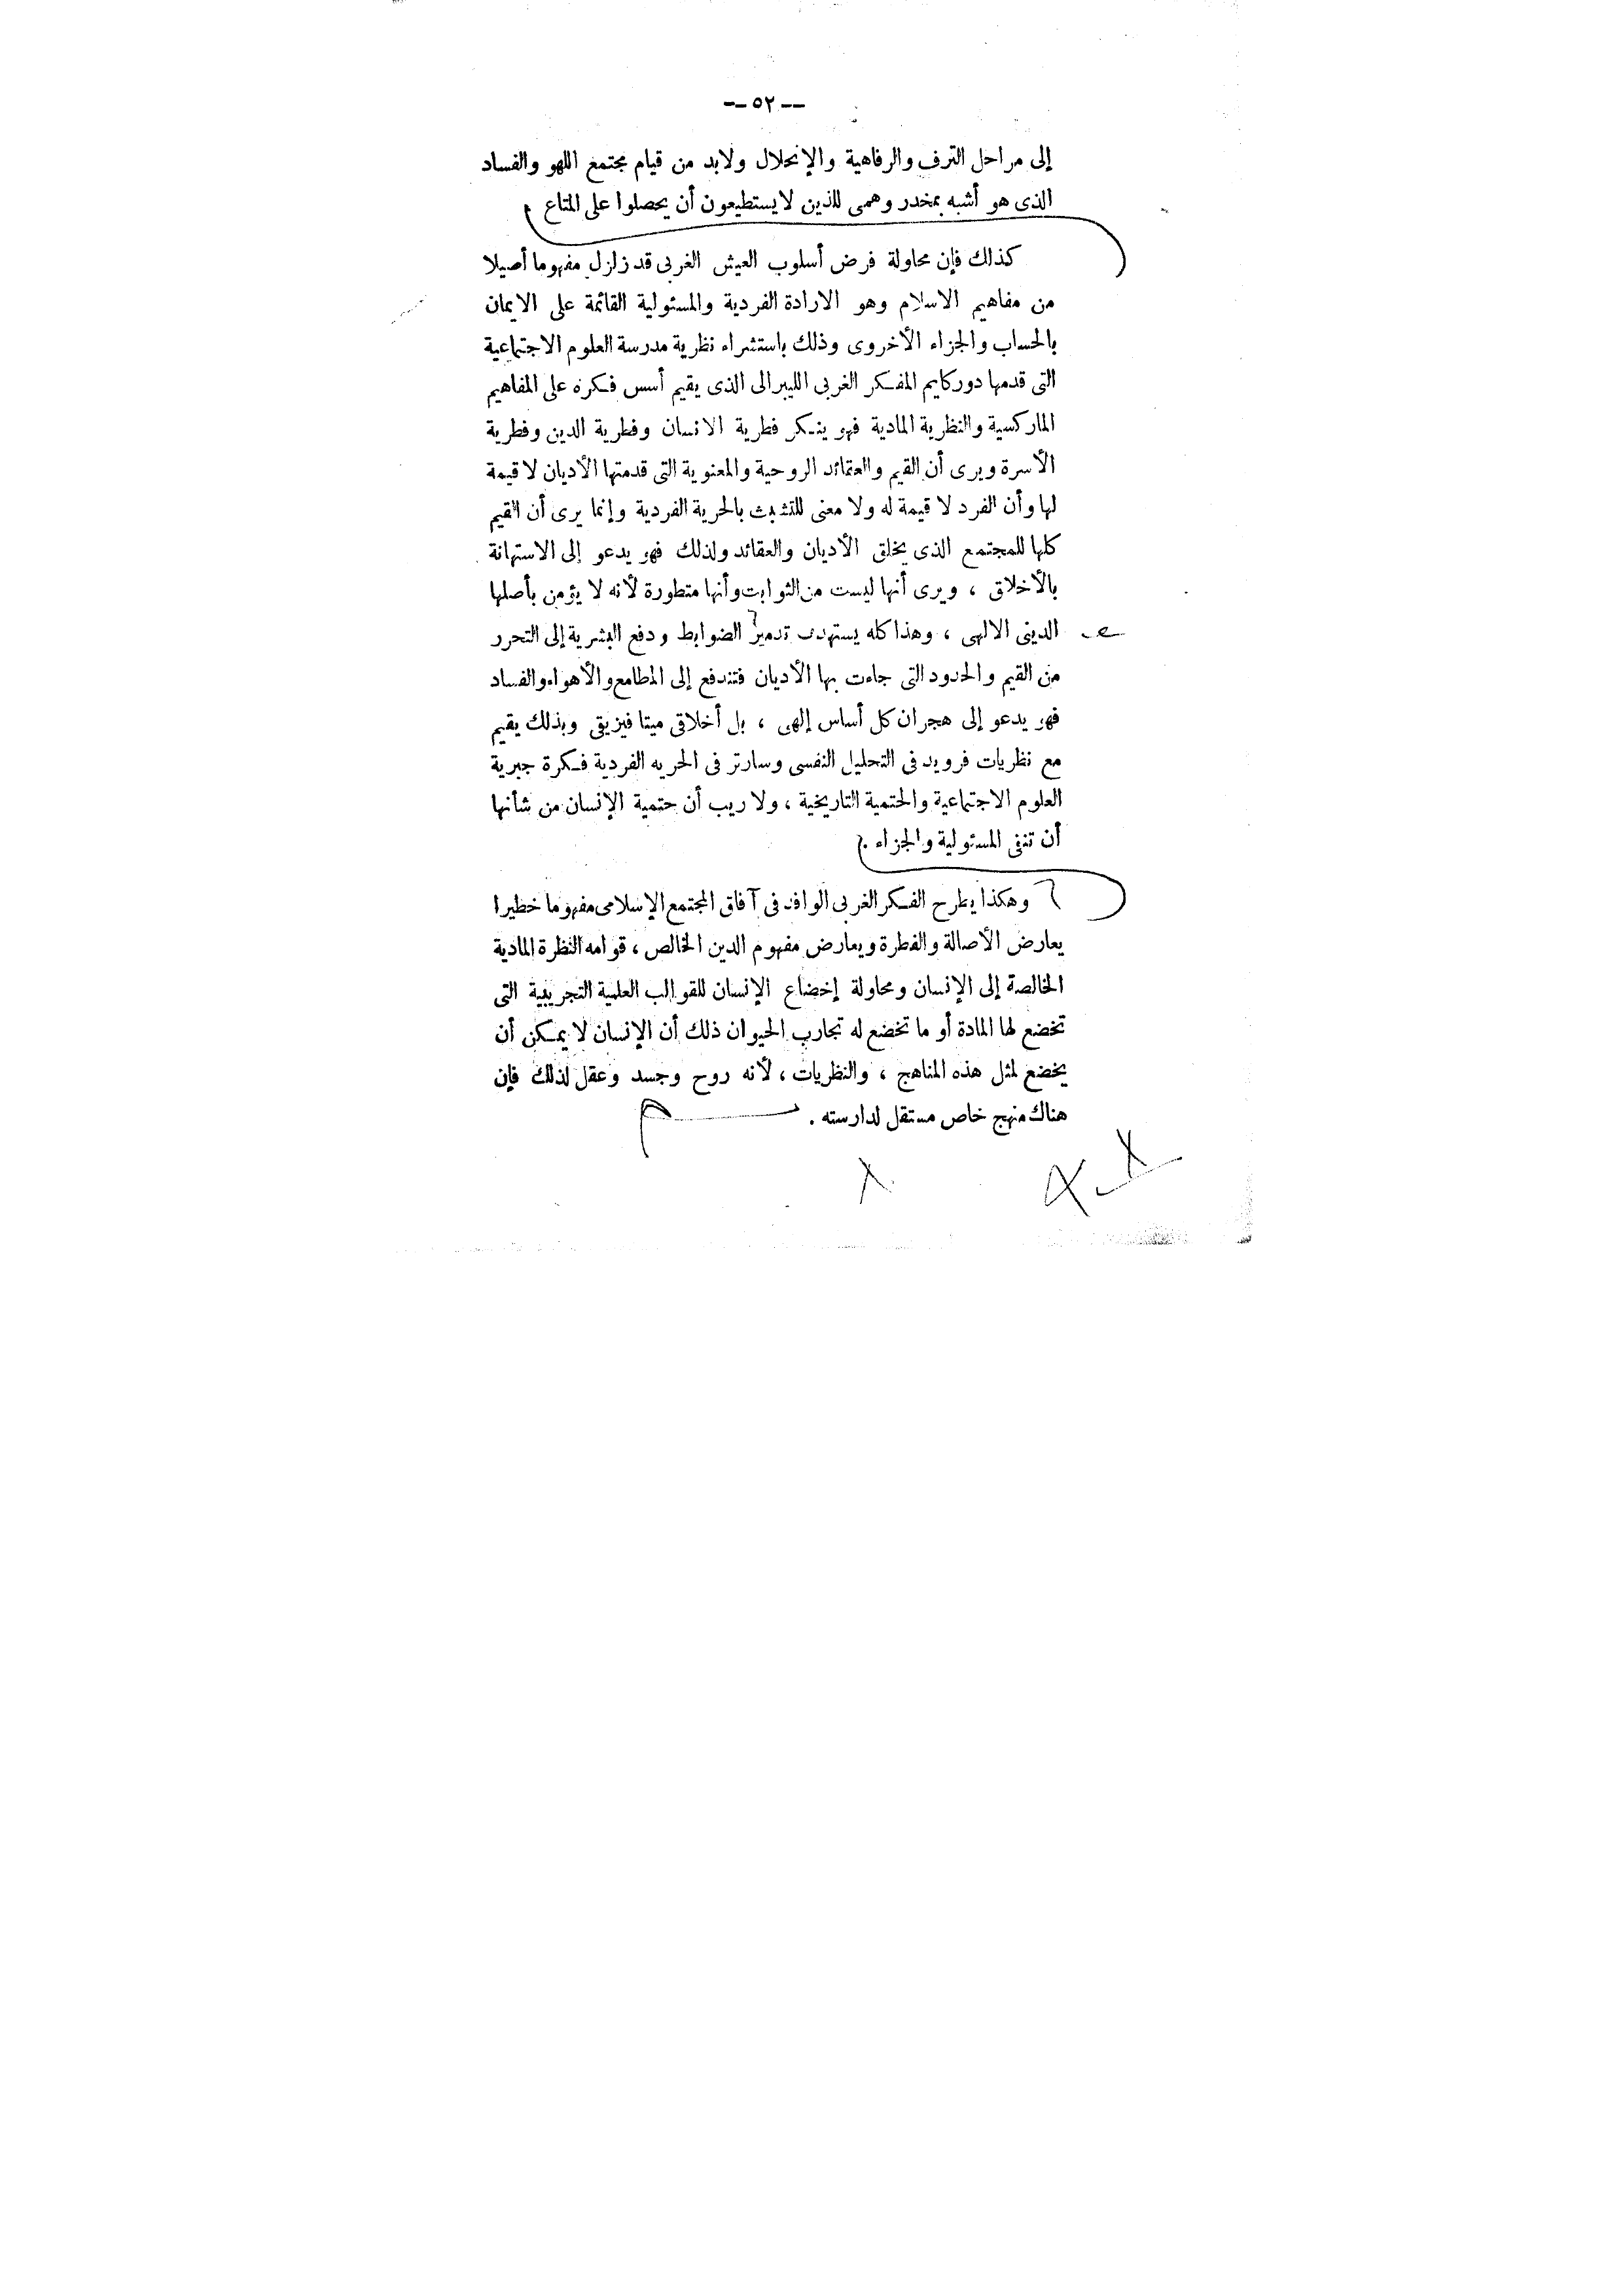 -- ٥٢ --
إلى مراحل الترف والرفاهية والإنحلال ولابد من قيام مجتمع اللهو والفساد
الذى هو أشبه بمخدر وهمى للذين لايستطيعون أن يحصلوا على المتاع .
كذلك فإن محاولة فرض أسلوب العيش الغربى قد زلزل مفهوما أصيلا
من مفاهيم الاسلام وهو الارادة الفردية والمسئولية القائمة على الايمان
بالحساب والجزاء الأخروى وذلك باستشراء نظرية مدرسة العلوم الاجتماعية
التى قدمها دوركايم المفكر الغربى الليبرالى الذى يقيم أسس فكره على المفاهيم
الماركسية والنظرية المادية فهو ينكر فطرية الانسان وفطرية الدين وفطرية
الأسرة ويرى أن القيم والعقائد الروحية والمعنوية التى قدمتها الأديان لا قيمة
لها وأن الفرد لا قيمة له ولا معنى للتشبث بالحرية الفردية وإنما يرى أن القيم
كلها للمجتمع الذى يخلق الأديان والعقائد ولذلك فهو يدعو إلى الاستهانة
بالأخلاق ، ويرى أنها ليست من الثوابت وأنها متطورة لأنه لا يؤمن بأصلها
الدينى الالهى ، وهذا كله يستهدف تدمير الضوابط ودفع البشرية إلى التحرر
من القيم والحدود التى جاءت بها الأديان فتندفع إلى المطامع والأهواء والفساد
فهو يدعو إلى هجران كل أساس إلهى ، بل أخلاقى ميتا فيزيقى وبذلك يقيم
مع نظريات فرويد فى التحليل النفسى وسارتر فى الحريه الفردية فكرة جبرية
العلوم الاجتماعية والحتمية التاريخية ، ولا ريب أن حتمية الإنسان من شأنها
أن تنفى المسئولية والجزاء .
وهكذا يطرح الفكر الغربى الوافد فى آفاق المجتمع الإسلامى مفهوما خطيرا
يعارض الأصالة والفطرة ويعارض مفهوم الدين الخالص ، قوامه النظرة المادية
الخالصة إلى الإنسان ومحاولة إخضاع الإنسان للقوالب العلمية التجريبية التى
تخضع لها المادة أو ما تخضع له تجارب الحيوان ذلك أن الإنسان لا يمكن أن
يخضع لمثل هذه المناهج ، والنظريات ، لأنه روح وجسد وعقل لذلك فإن
هناك منهج خاص مستقل لدارسته .